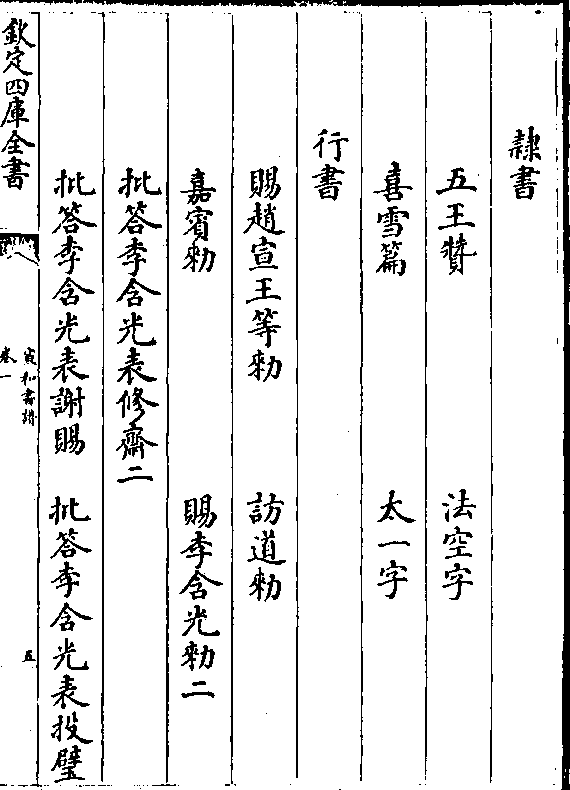 隸書
五王贊　法空字
喜雪篇　太一字
行書
賜趙宣王等勑　訪道勑
嘉賓勑　賜李含光勑二
批答李含光表修齋二
批答李含光表謝賜　批答李含光表投璧
欽定四庫全書
宣和書譜
卷一
五